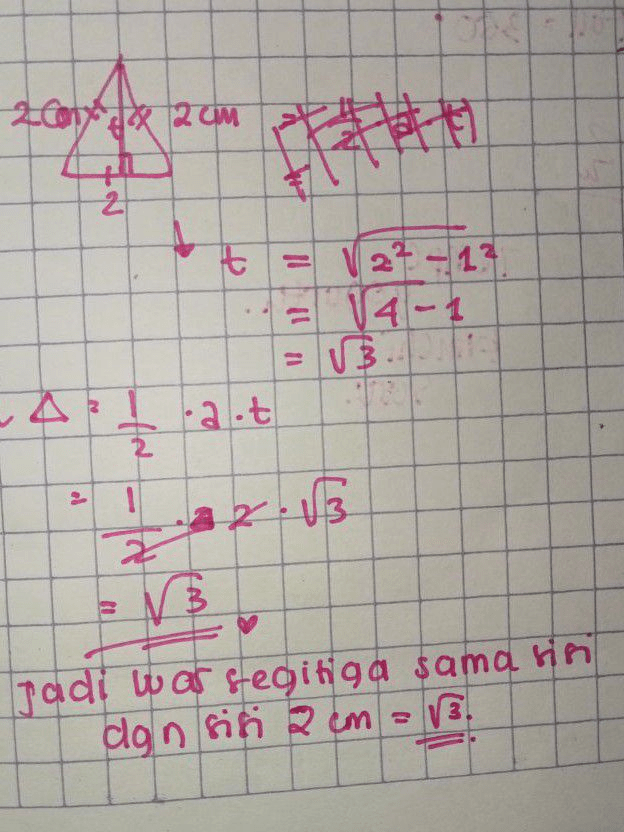 2 cm t 2 cm
2
↓ t = √2² - 1²
= √4 - 1
= √3.
L Δ = 1/2 · a · t
= 1/2 · 2 · √3
= √3
Jadi luas segitiga sama sisi
dgn sisi 2 cm = √3.